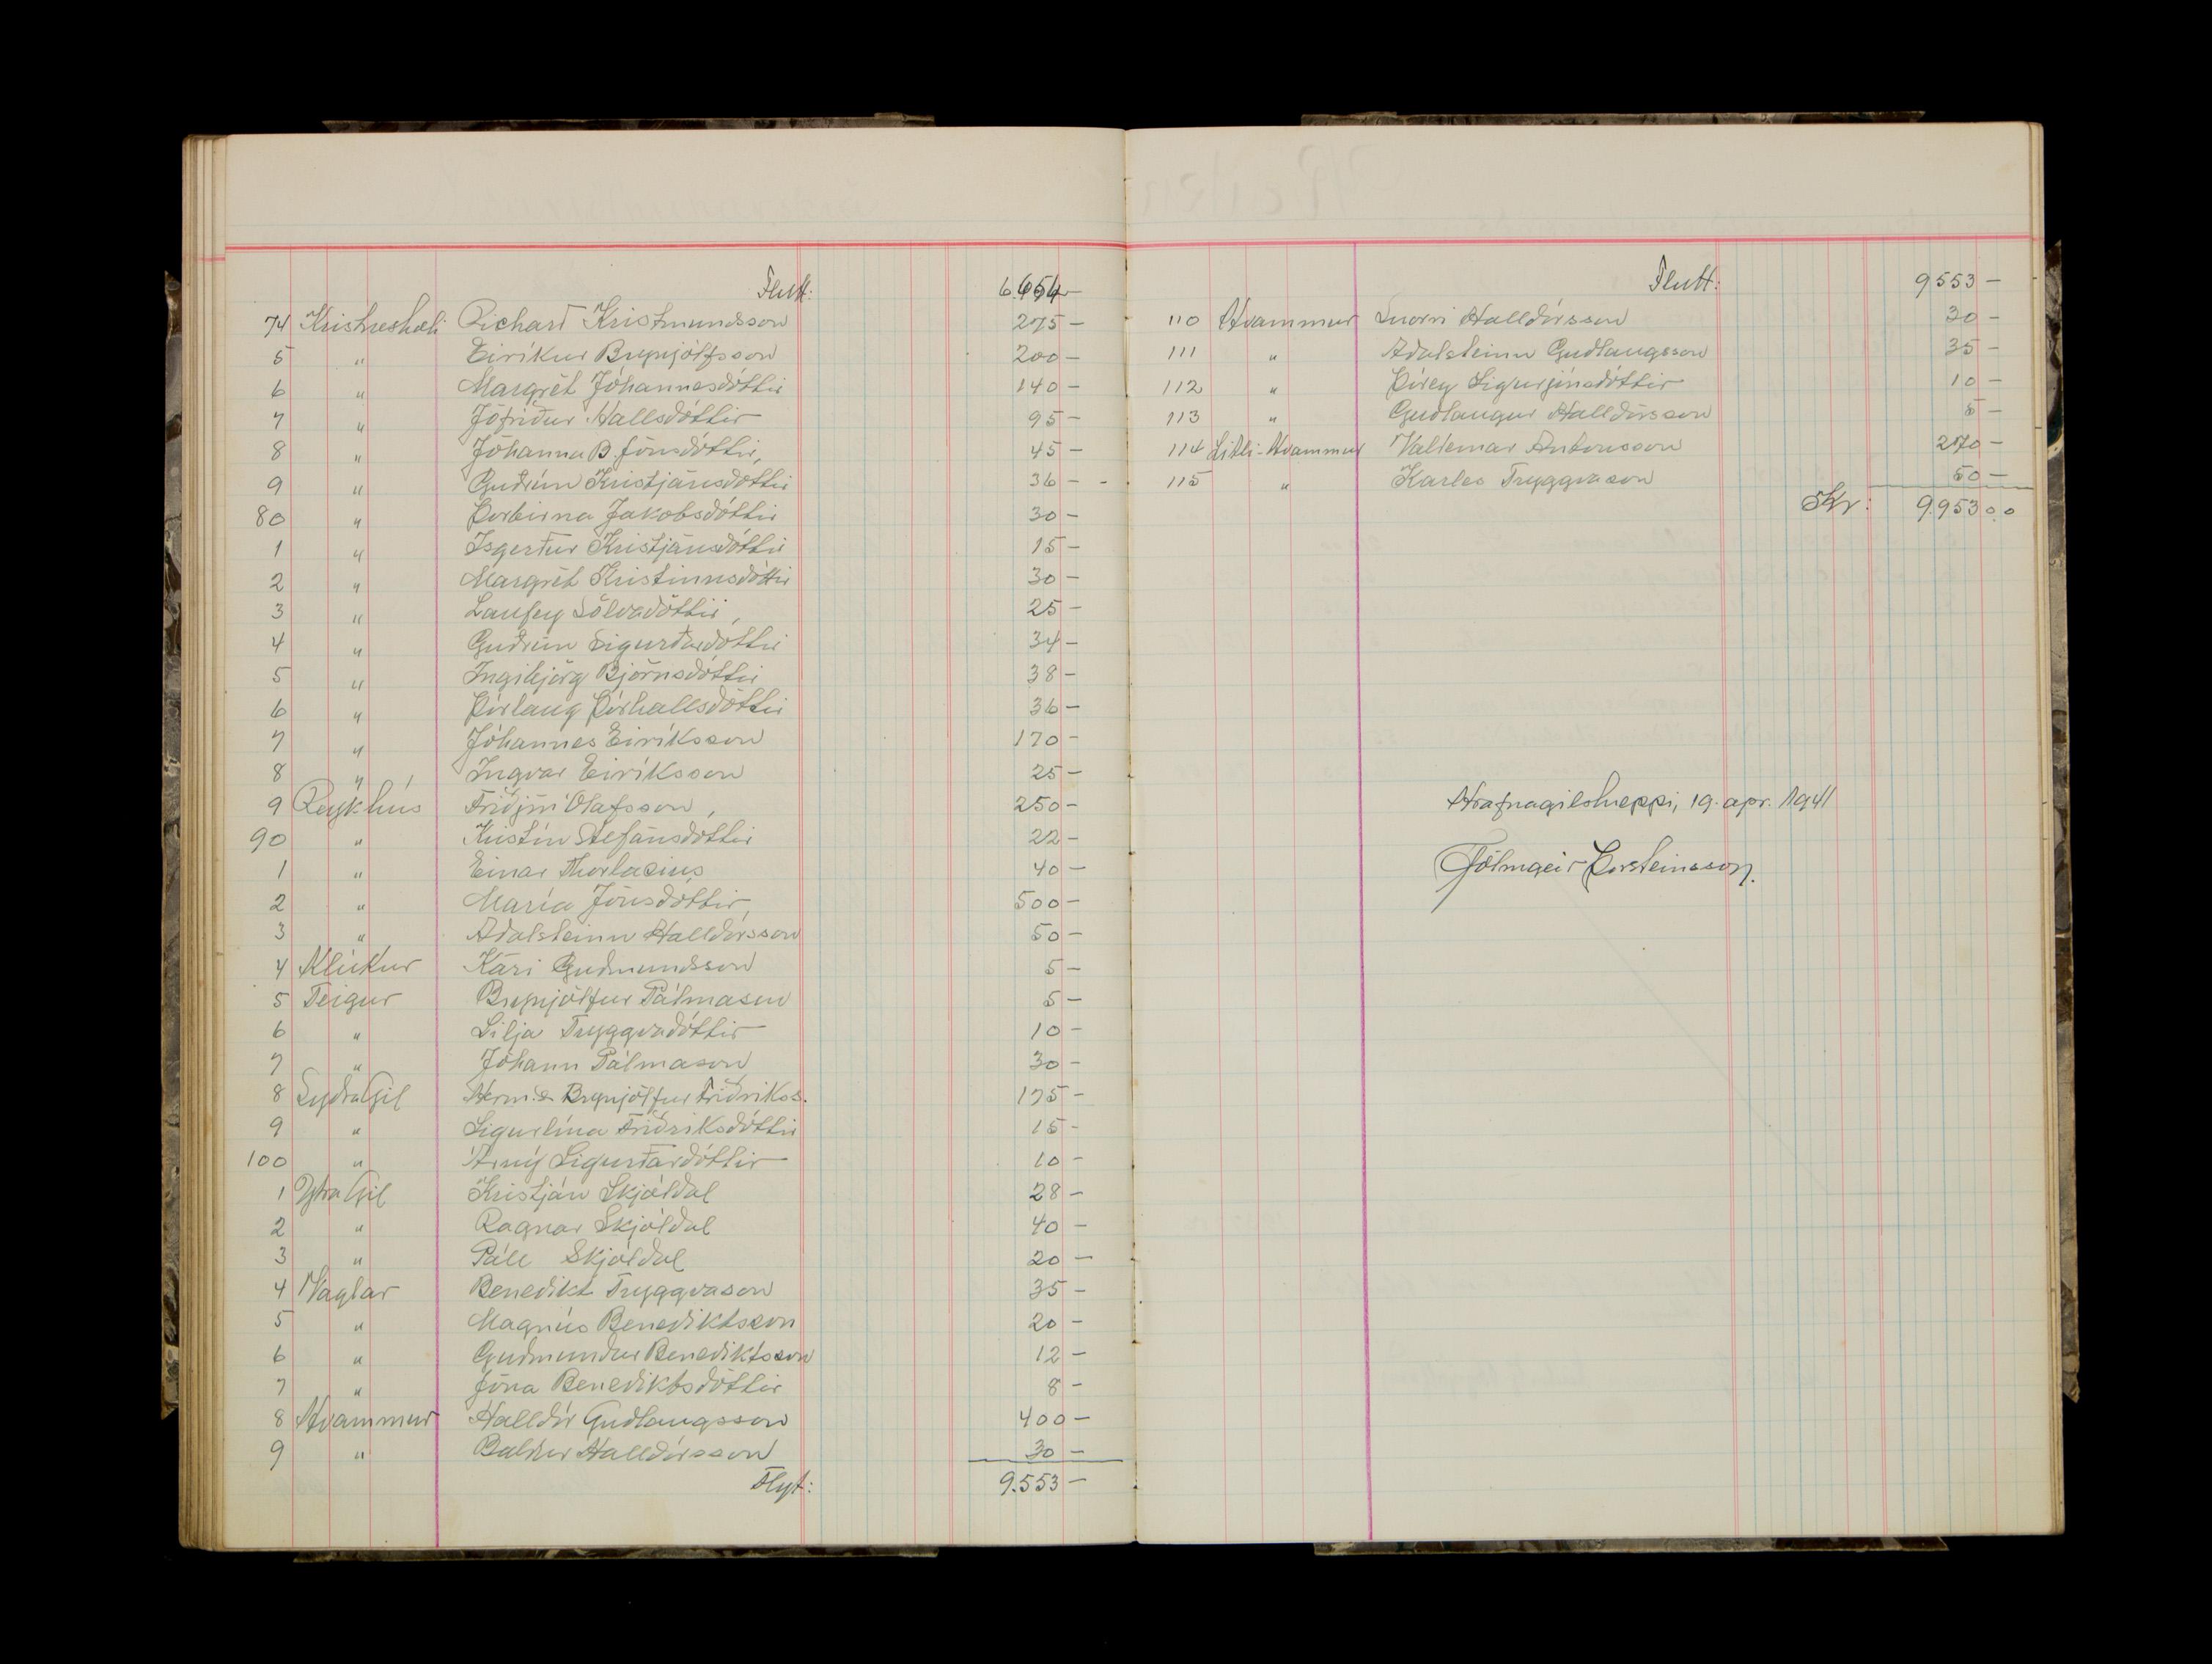 Flutt: 6.654-
74 Kristneshæli Richard Kristmundsson 275-
5 " Eiríkur Brynjólfsson 200-
6 " Margrét Jóhannesdóttir 140-
7 " Jófríður Hallsdóttir 95-
8 " Jóhanna B. Jónsdóttir, 45-
9 " Guðrún Kristjánsdóttir 36-
80 " Þorbirna Jakobsdóttir 30-
1 " Ísgerður Kristjánsdóttir 15-
2 " Margrét Kristinnsdóttir 30-
3 " Laufey Sölvadóttir, 25-
4 " Guðrún Sigurðardóttir 34-
5 " Ingibjörg Björnsdóttir 38-
6 " Þórlaug Þórhallsdóttir 36-
7 " Jóhannes Eiríksson 170-
8 " Ingvar Eiríksson 25-
9 Reykhús Friðjón Ólafsson, 250-
90 " Kristín Stefánsdóttir 22-
1 " Einar Thorlacius 40-
2 " María Jónsdóttir, 500-
3 " Aðalsteinn Halldórsson 50-
4 Klúkur Kári Guðmundsson 5-
5 Teigur Brynjólfur Pálmason 5-
6 " Lilja Tryggvadóttir 10-
7 " Jóhann Pálmason 30-
8 Syðra Gil Herm. & Brynjólfur Friðrikss. 175-
9 " Sigurlína Friðriksdóttir 15-
100 " Árný Sigurðardóttir 10-
1 Ytra Gil Kristján Skjóldal 28-
2 " Ragnar Skjóldal 40-
3 " Páll Skjóldal 20-
4 Vaglar Benedikt Tryggvason 35-
5 " Magnús Benediktsson 20-
6 " Guðmundur Benediktsson 12-
7 " Jóna Benediktsdóttir 8-
8 Hvammur Halldór Guðlaugsson 400-
9 " Baldur Halldórsson 30-
Flyt: 9.553-
Flutt: 9553-
110 Hvammur Snorri Halldórsson 30-
111 " Aðalsteinn Guðlaugsson 35-
112 " Þórey Sigurjónsdóttir 10-
113 " Guðlaugur Halldórsson 5-
114 Litli-Hvammur Valdemar Antonsson 270-
115 " Karles Tryggvason 50-
Kr: 9.953 00
Hrafnagilshreppi, 19. apr. 1941
Hólmgeir Þorsteinsson.